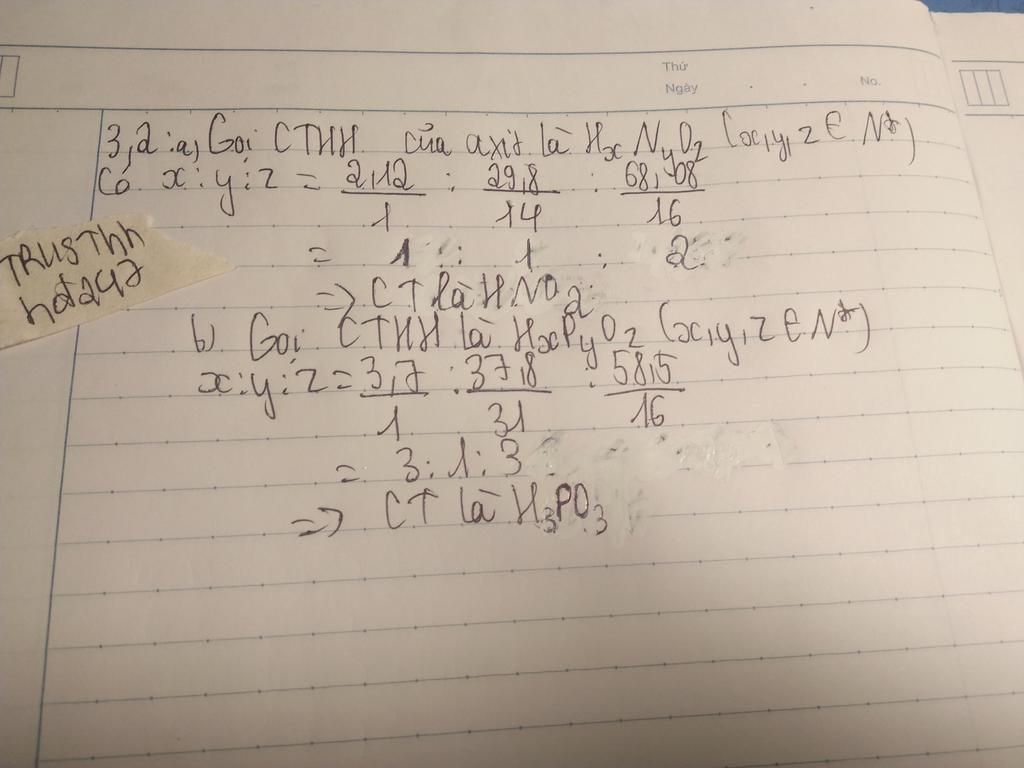 Thứ
Ngày
No.
3,2 : a, Gọi CTHH của axit là HxNyOz (x,y,z ∈ N*)
Có x : y : z = 2,12/1 : 29,8/14 : 68,08/16
= 1 : 1 : 2
=> CT là HNO2
b) Gọi CTHH là HxPyOz (x,y,z ∈ N*)
x : y : z = 3,7/1 : 37,8/31 : 58,5/16
= 3 : 1 : 3
=> CT là H3PO3
TRUSThh
hd247